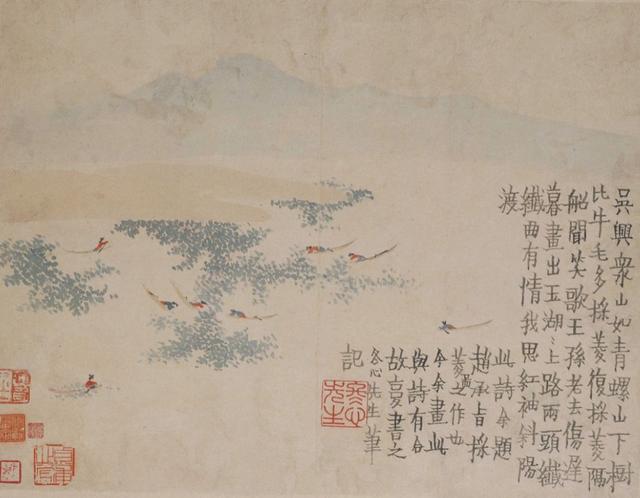 吳興衆山如青螺山下樹
比牛毛多採菱復採菱隔
船聞笑歌王孫老去傷遲
暮畫出玉湖〻上路兩頭纖
纖曲有情我思紅袖斜陽
渡
此詩余題
趙承旨採
菱圖之作也
今余畫此
與詩有合
故亦書之
冬心先生筆
記
冬心先生